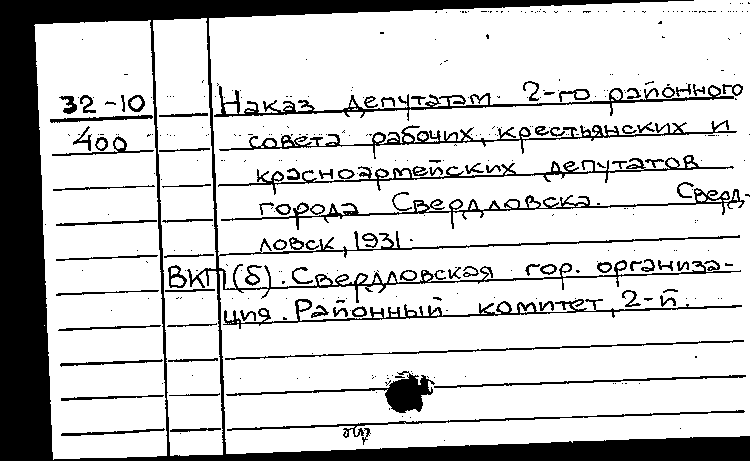 32-10 Наказ депутатам 2-го районного
400 совета рабочих, крестьянских и
красноармейских депутатов
города Свердловска. Сверд-
ловск, 1931.
ВКП(б). Свердловская гор. организа-
ция. Районный комитет, 2-й.